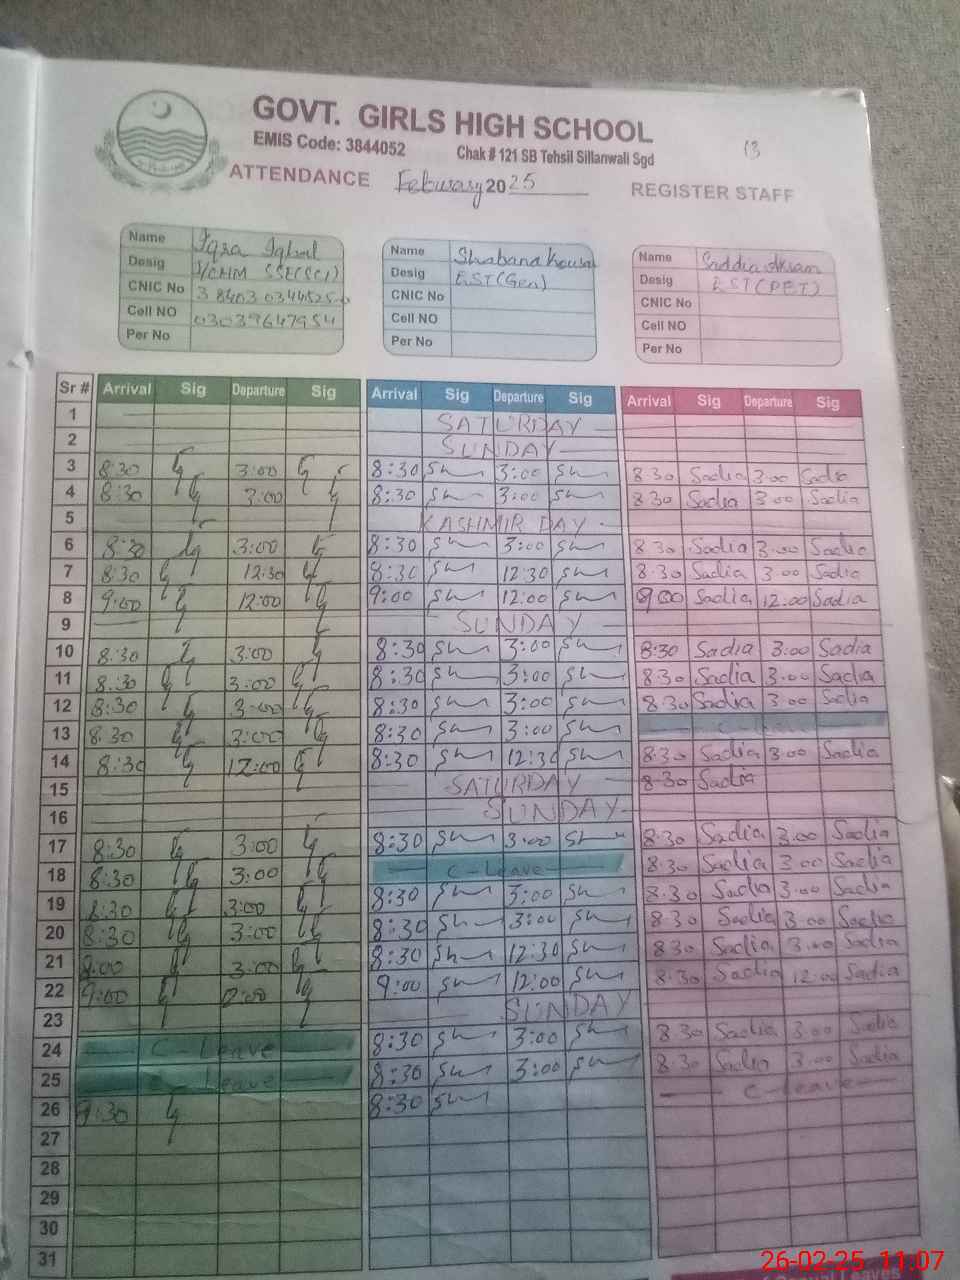 GOVT. GIRLS HIGH SCHOOL
EMIS Code: 3844052 Chak # 121 SB Tehsil Sillanwali Sgd
13
ATTENDANCE Feburary 2025 REGISTER STAFF
Name Iqra Iqbal
Desig I/CHM SSE(SCI)
CNIC No
Cell NO 03039647954
Per No
Name Shabana Kousar
Desig EST(Gen)
CNIC No
Cell NO
Per No
Name Saddia Akram
Desig EST(PET)
CNIC No
Cell NO
Per No
Sr # Arrival Sig Departure Sig Arrival Sig Departure Sig Arrival Sig Departure Sig
1 SATURDAY
2 SUNDAY
3 8:30 3:00 8:30 3:00 8:30 Sadia 3:00 Sadia
4 8:30 3:00 8:30 3:00 8:30 Sadia 3:00 Sadia
5 KASHMIR DAY
6 8:30 3:00 8:30 3:00 8:30 Sadia 3:00 Sadia
7 8:30 12:30 8:30 12:30 8:30 Sadia 3:00 Sadia
8 9:00 12:00 9:00 12:00 9:00 Sadia 12:00 Sadia
9 SUNDAY
10 8:30 3:00 8:30 3:00 8:30 Sadia 3:00 Sadia
11 8:30 3:00 8:30 3:00 8:30 Sadia 3:00 Sadia
12 8:30 3:00 8:30 3:00 8:30 Sadia 3:00 Sadia
13 8:30 3:00 8:30 3:00 C-Leave
14 8:30 12:00 8:30 12:30 8:30 Sadia 3:00 Sadia
15 SATURDAY 8:30 Sadia
16 SUNDAY
17 8:30 3:00 8:30 3:00 8:30 Sadia 3:00 Sadia
18 8:30 3:00 C-Leave 8:30 Sadia 3:00 Sadia
19 8:30 3:00 8:30 3:00 8:30 Sadia 3:00 Sadia
20 8:30 3:00 8:30 3:00 8:30 Sadia 3:00 Sadia
21 8:00 3:00 8:30 12:30 8:30 Sadia 3:00 Sadia
22 9:00 9:00 12:00 8:30 Sadia 12:00 Sadia
23 SUNDAY
24 C-Leave 8:30 3:00 8:30 Sadia 3:00 Sadia
25 C-Leave 8:30 3:00 8:30 Sadia 3:00 Sadia
26 9:30 8:30 C-Leave
27
28
29
30
31
26-02-25 11:07